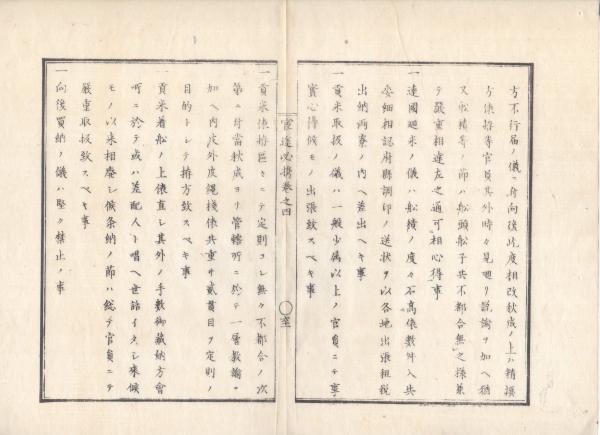 方不行届ノ儀ニ付向後此度相改秋成ノ上ハ精撰
方俵拵等官員其外時々見廻リ説諭ヲ加ヘ猶
又船積等ノ節ハ船頭船子共不都合無之様兼
テ嚴重相達左之通可相心得事
一遠國廻米ノ儀ハ船積ノ度々石高俵数斗入共
委細相認府縣調印ノ送状ヲ以各地出張租税
出納両寮ノ内ヘ差出ヘキ事
一貢米取扱ノ儀ハ一般少属以上ノ官員ニテ事
實心得候モノ出張致スヘキ事
官途必携巻之四
一貢米俵拵區々ニテ定則コレ無ク不都合ノ次
第ニ付當秋成ヨリ管轄所ニ於テ一層教諭ヲ
加ヘ内皮外皮縄桟俵共重サ貳貫目ヲ定則ノ
目的トシテ拵方致スヘキ事
一貢米着船ノ上俵直シ其外ノ手数御蔵納方會
所ニ於テ或ハ差配人ト唱ヘ世話イタシ来候
モノ以来相廃シ候条納ノ節ハ総テ官員ニテ
嚴重取扱致スヘキ事
一向後買納ノ儀ハ堅ク禁止ノ事